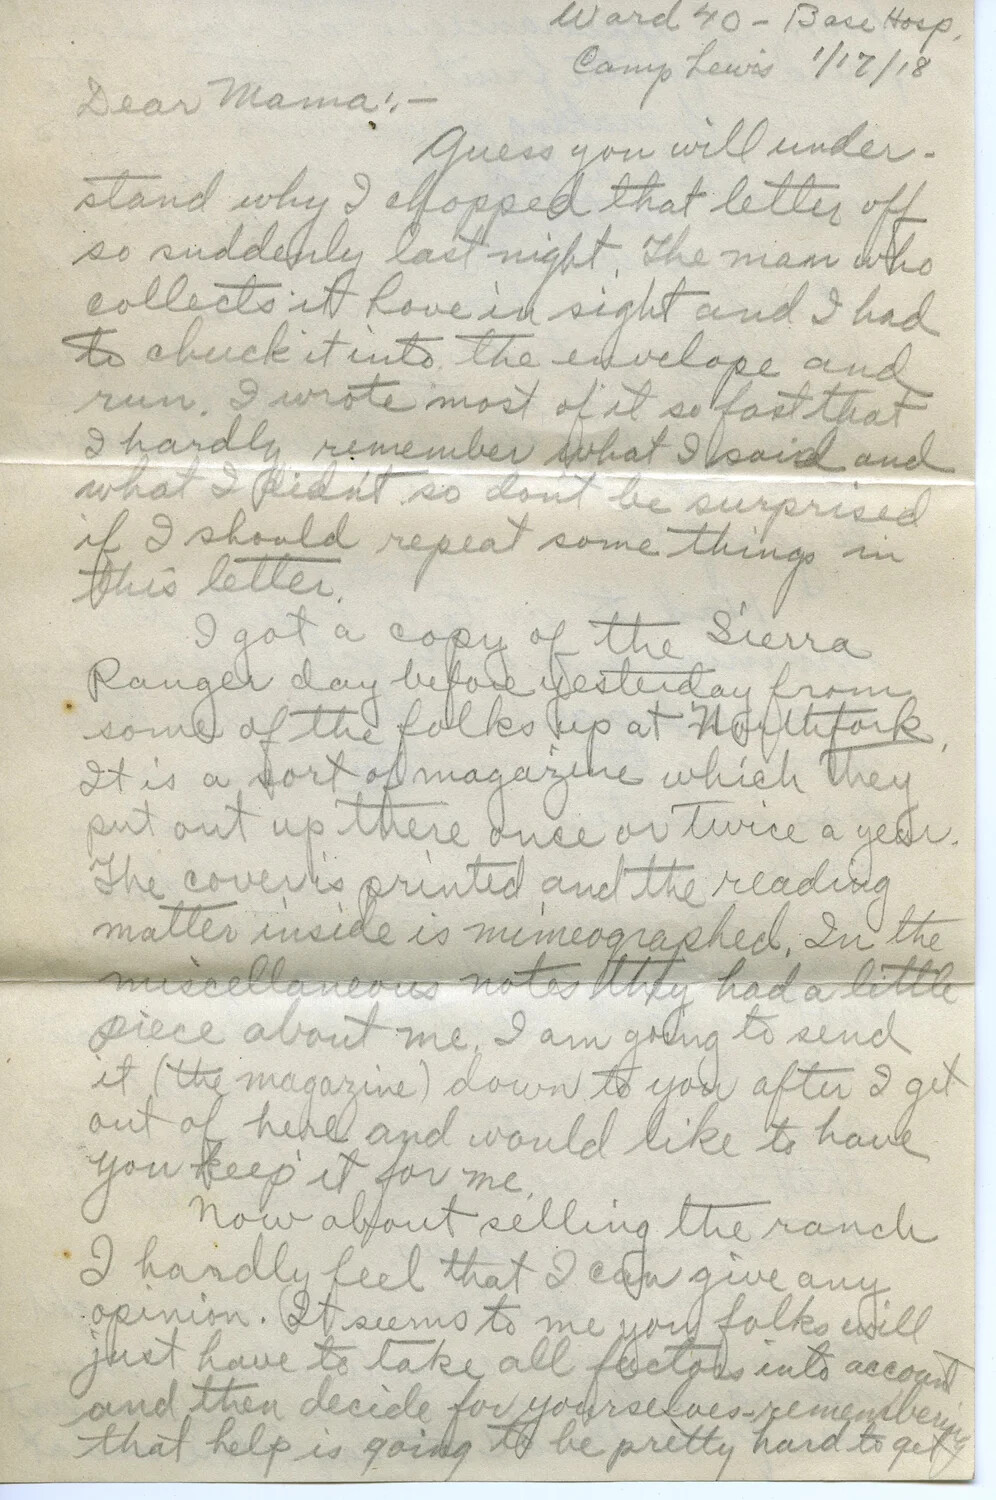 Ward 40 - Base Hosp.
Camp Lewis 1/17/18
Dear Mama:-
Guess you will under-
stand why I chopped that letter off
so suddenly last night. The man who
collects it hove in sight and I had
to chuck it into the envelope and
run. I wrote most of it so fast that
I hardly remember what I said and
what I didn't so don't be surprised
if I should repeat some things in
this letter.
I got a copy of the Sierra
Ranger day before yesterday from
some of the folks up at Northfork.
It is a sort of magazine which they
put out up there once or twice a year.
The cover is printed and the reading
matter inside is mimeographed. In the
miscellaneous notes they had a little
piece about me. I am going to send
it (the magazine) down to you after I get
out of here and would like to have
you keep it for me.
Now about selling the ranch
I hardly feel that I can give any
opinion. It seems to me you folks will
just have to take all factors into account
and then decide for yourselves - remembering
that help is going to be pretty hard to get